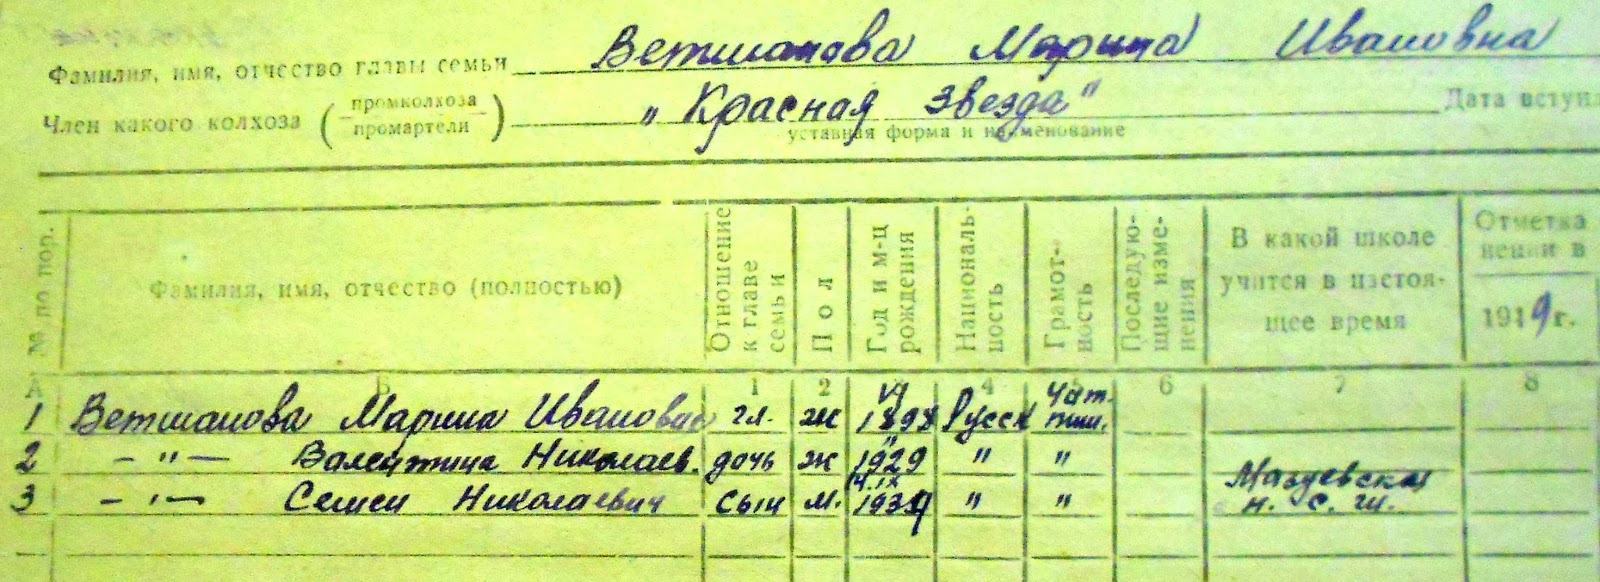 Фамилия, имя, отчество главы семьи Ветшанова Марина Ивановна
Член какого колхоза (промколхоза промартели) „Красная Звезда" Дата вступл
уставная форма и наименование
№ по пор. Фамилия, имя, отчество (полностью) Отношение к главе семьи Пол Год и м-ц рождения Националь-ность Грамот-ность Последую-щие изме-нения В какой школе учится в настоя-щее время Отметка нении в 1949 г.
А Б 1 2 3 4 5 6 7 8
1 Ветшанова Марина Ивановна гл. ж 1898 Русск чит. пиш.
2 —"— Валентина Николаев. дочь ж 1929 " "
3 —"— Семен Николаевич сын м. 1934 " " Мазуевская н. с. ш.